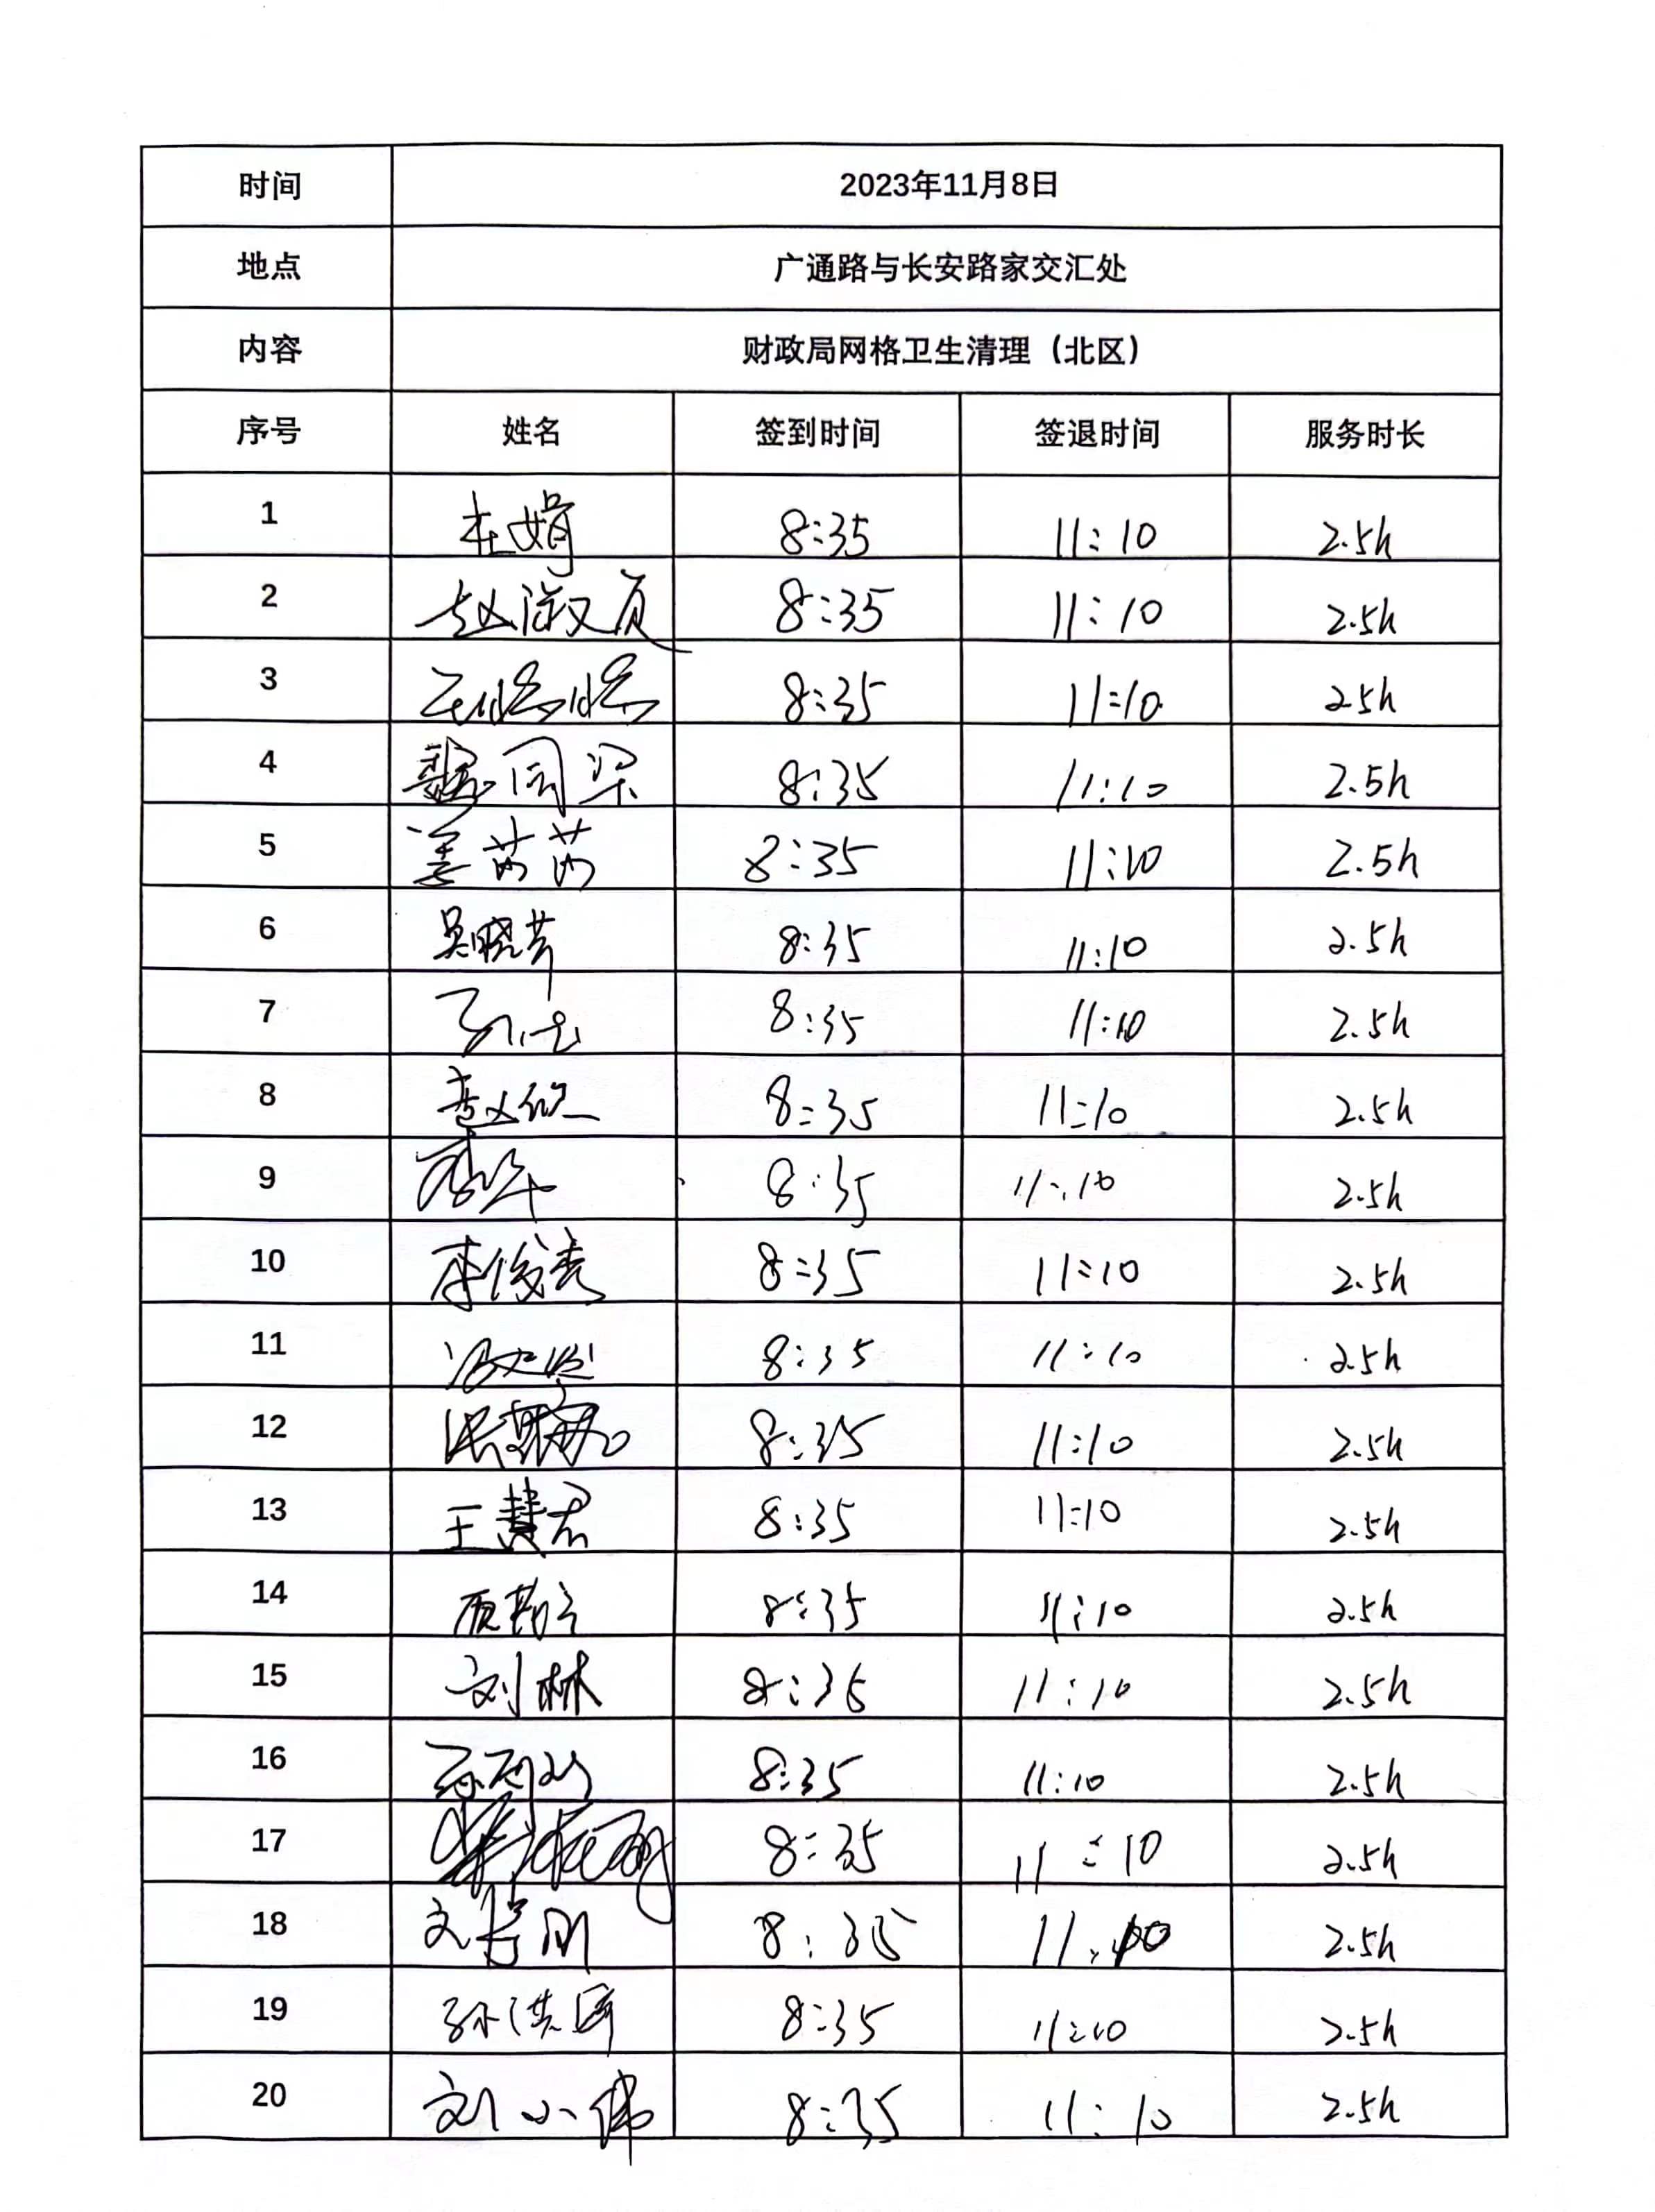 时间 2023年11月8日
地点 广通路与长安路家交汇处
内容 财政局网格卫生清理（北区）
序号 姓名 签到时间 签退时间 服务时长
1 杜娟 8:35 11:10 2.5h
2 赵淑贞 8:35 11:10 2.5h
3 8:35 11:10 2.5h
4 魏同梁 8:35 11:10 2.5h
5 姜莎莎 8:35 11:10 2.5h
6 吴晓芳 8:35 11:10 2.5h
7 8:35 11:10 2.5h
8 8:35 11:10 2.5h
9 8:35 11:10 2.5h
10 李俊秀 8:35 11:10 2.5h
11 8:35 11:10 2.5h
12 8:35 11:10 2.5h
13 王慧君 8:35 11:10 2.5h
14 8:35 11:10 2.5h
15 刘林 8:35 11:10 2.5h
16 8:35 11:10 2.5h
17 8:35 11:10 2.5h
18 8:35 11:10 2.5h
19 8:35 11:10 2.5h
20 刘小伟 8:35 11:10 2.5h